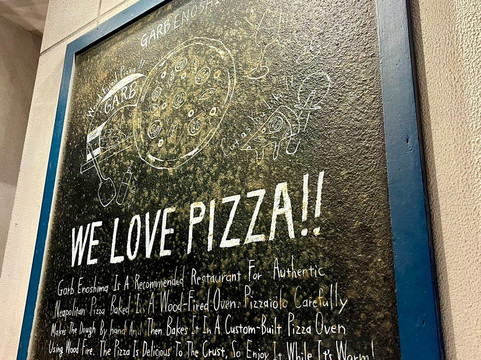 GARB ENOSHI
GARB
WE LOVE PIZZA!!
Garb Enoshima Is A Recommended Restaurant For Authentic
Neapolitan Pizza Baked In A Wood-Fired Oven. Pizzaiolo Carefully
Makes The Dough By Hand And Then Bakes It In A Custom-Built Pizza Oven
Using Wood Fire. The Pizza Is Delicious To The Crust, So Enjoy It While It's Warm!